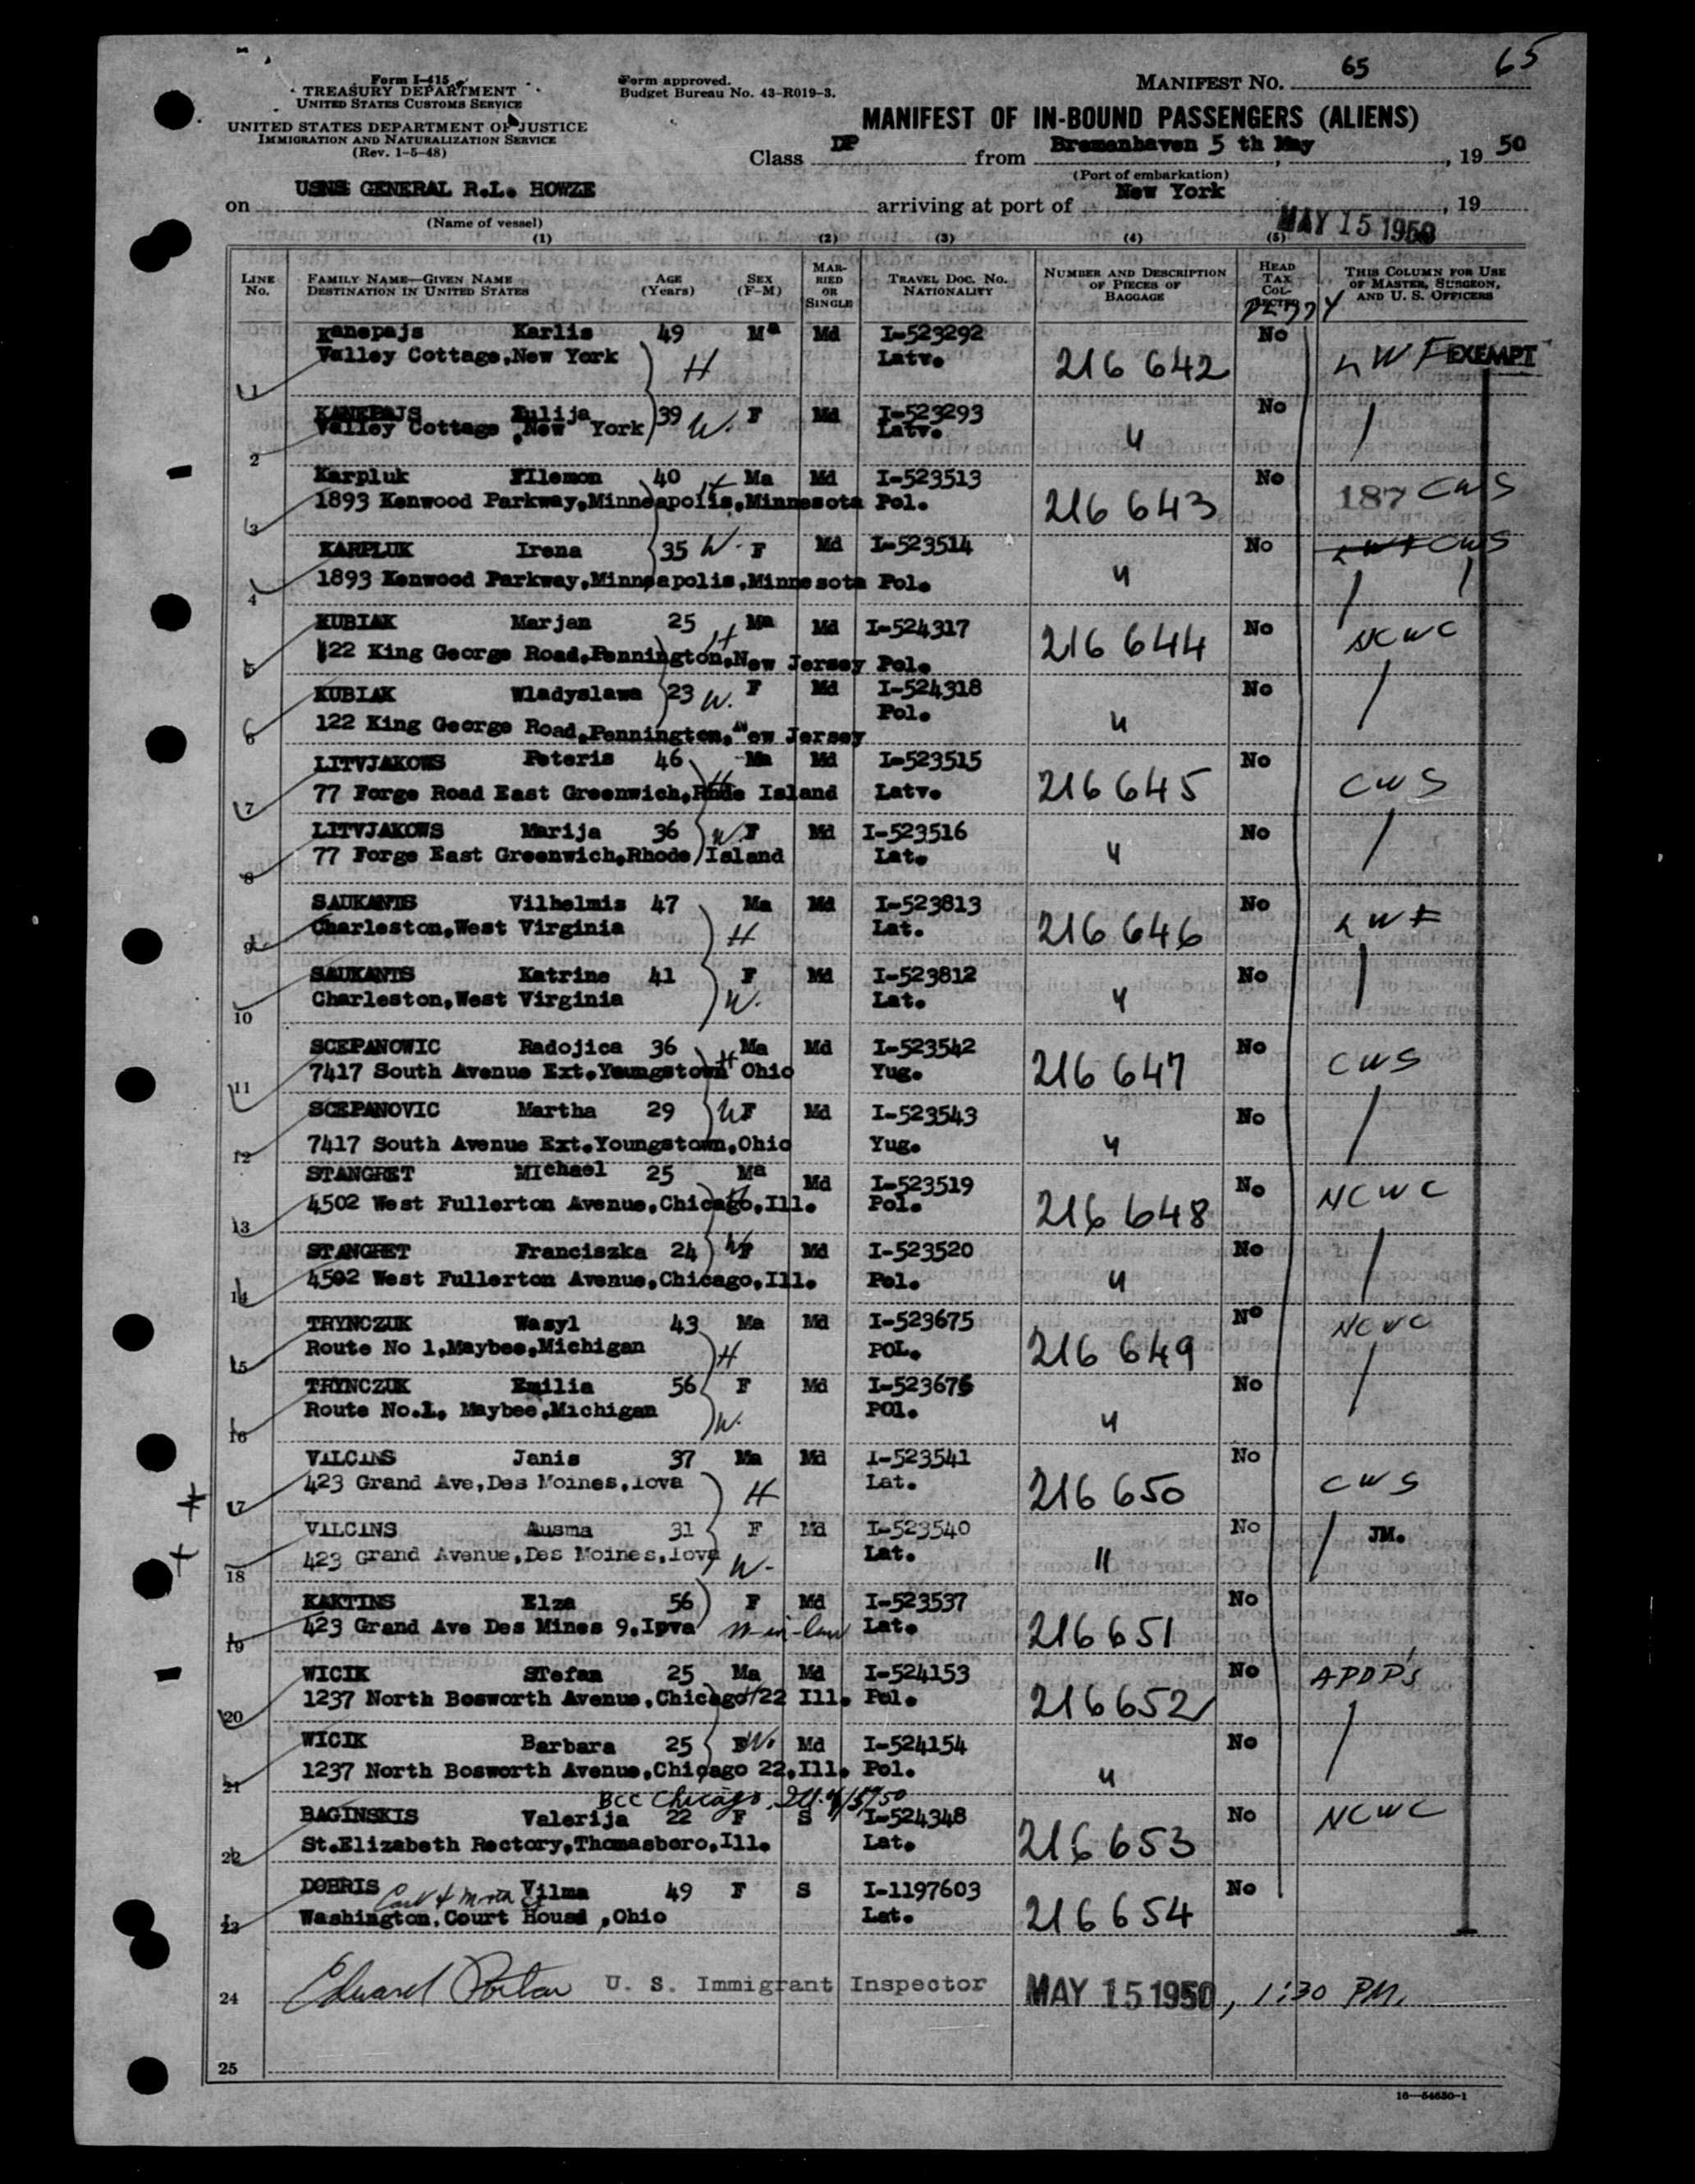 65
65
Form I-415
TREASURY DEPARTMENT
UNITED STATES CUSTOMS SERVICE
UNITED STATES DEPARTMENT OF JUSTICE
IMMIGRATION AND NATURALIZATION SERVICE
(Rev. 1-5-48)
Form approved.
Budget Bureau No. 43-R019-3.
MANIFEST NO.
MANIFEST OF IN-BOUND PASSENGERS (ALIENS)
Class DP from Bremenhaven 5 th May, 19 50
(Port of embarkation)
on USNS GENERAL R.L. HOWZE arriving at port of New York, 19
(Name of vessel)
MAY 15 1950
(1) (2) (3) (4) (5)
LINE No. FAMILY NAME—GIVEN NAME DESTINATION IN UNITED STATES AGE (Years) SEX (F-M) MARRIED OR SINGLE TRAVEL DOC. NO. NATIONALITY NUMBER AND DESCRIPTION OF PIECES OF BAGGAGE HEAD TAX COL- THIS COLUMN FOR USE OF MASTER, SURGEON, AND U. S. OFFICERS
Kanepajs Karlis 49 Ma Md I-523292 No
1 Valley Cottage,New York H Latv. 216 642 LWF EXEMPT
KANEPAJS Zulija 39 W. F Md I-523293 No
2 Valley Cottage ,New York Latv. "
Karpluk FIlemon 40 H Ma Md I-523513 No
3 1893 Kenwood Parkway,Minneapolis,Minnesota Pol. 216 643 187 CWS
KARPLUK Irena 35 W. F Md I-523514 No CWS
4 1893 Kenwood Parkway,Minneapolis,Minnesota Pol. "
KUBIAK Marjan 25 H Ma Md I-524317 No
5 122 King George Road,Pennington,New Jersey Pol. 216 644 NCWC
KUBIAK Wladyslawa 23 W. F Md I-524318 No
Pol.
6 122 King George Road,Pennington,New Jersey "
LITVJAKOWS Peteris 46 Ma Md I-523515 No
7 77 Forge Road East Greenwich,Rhde Island H Latv. 216 645 CWS
LITVJAKOWS Marija 36 W. F Md I-523516 No
8 77 Forge East Greenwich,Rhode Island Lat. "
SAUKANTS Vilhelmis 47 Ma Md I-523813 No
9 Charleston,West Virginia H Lat. 216 646 LWF
SAUKANTS Katrine 41 F Md I-523812 No
10 Charleston,West Virginia W. Lat. "
SCEPANOWIC Radojica 36 H Ma Md I-523542 No
11 7417 South Avenue Ext.Youngstown Ohio Yug. 216 647 CWS
SCEPANOVIC Martha 29 W F Md I-523543 No
12 7417 South Avenue Ext.Youngstown,Ohio Yug. "
STANGRET MIchael 25 Ma Md I-523519 No
13 4502 West Fullerton Avenue,Chicago,Ill. H Pol. 216 648 NCWC
STANGRET Franciszka 24 W F Md I-523520 No
14 4502 West Fullerton Avenue,Chicago,Ill. Pol. "
TRYNCZUK Wasyl 43 Ma Md I-523675 No
15 Route No 1,Maybee,Michigan H POL. 216 649 NCWC
TRYNCZUK Emilia 56 F Md I-523676 No
16 Route No.1, Maybee,Michigan W. POl. "
VILCINS Janis 37 Ma Md I-523541 No
17 423 Grand Ave,Des Moines,Iova H Lat. 216 650 CWS
VILCINS Ausma 31 F Md I-523540 No JM.
18 423 Grand Avenue,Des Moines,Iova W. Lat. "
KAKTINS Elza 56 F Md I-523537 No
19 423 Grand Ave Des Mines 9.Ipva m-in-law Lat. 216651
WICIK STefan 25 Ma Md I-524153 No
20 1237 North Bosworth Avenue,Chicago 22 Ill. H Pol. 216652 APDP's
WICIK Barbara 25 F W. Md I-524154 No
21 1237 North Bosworth Avenue,Chicago 22,Ill. Pol. "
BCC Chicago, Ill.
BAGINSKIS Valerija 22 F S I-524348 No NCWC
22 St.Elizabeth Rectory,Thomasboro,Ill. Lat. 216 653
DOBRIS Vilma 49 F S I-1197603 No
23 Washington,Court Housd ,Ohio Lat. 216 654
24 U. S. Immigrant Inspector MAY 15 1950, 1:30 PM.
25
16—54650-1